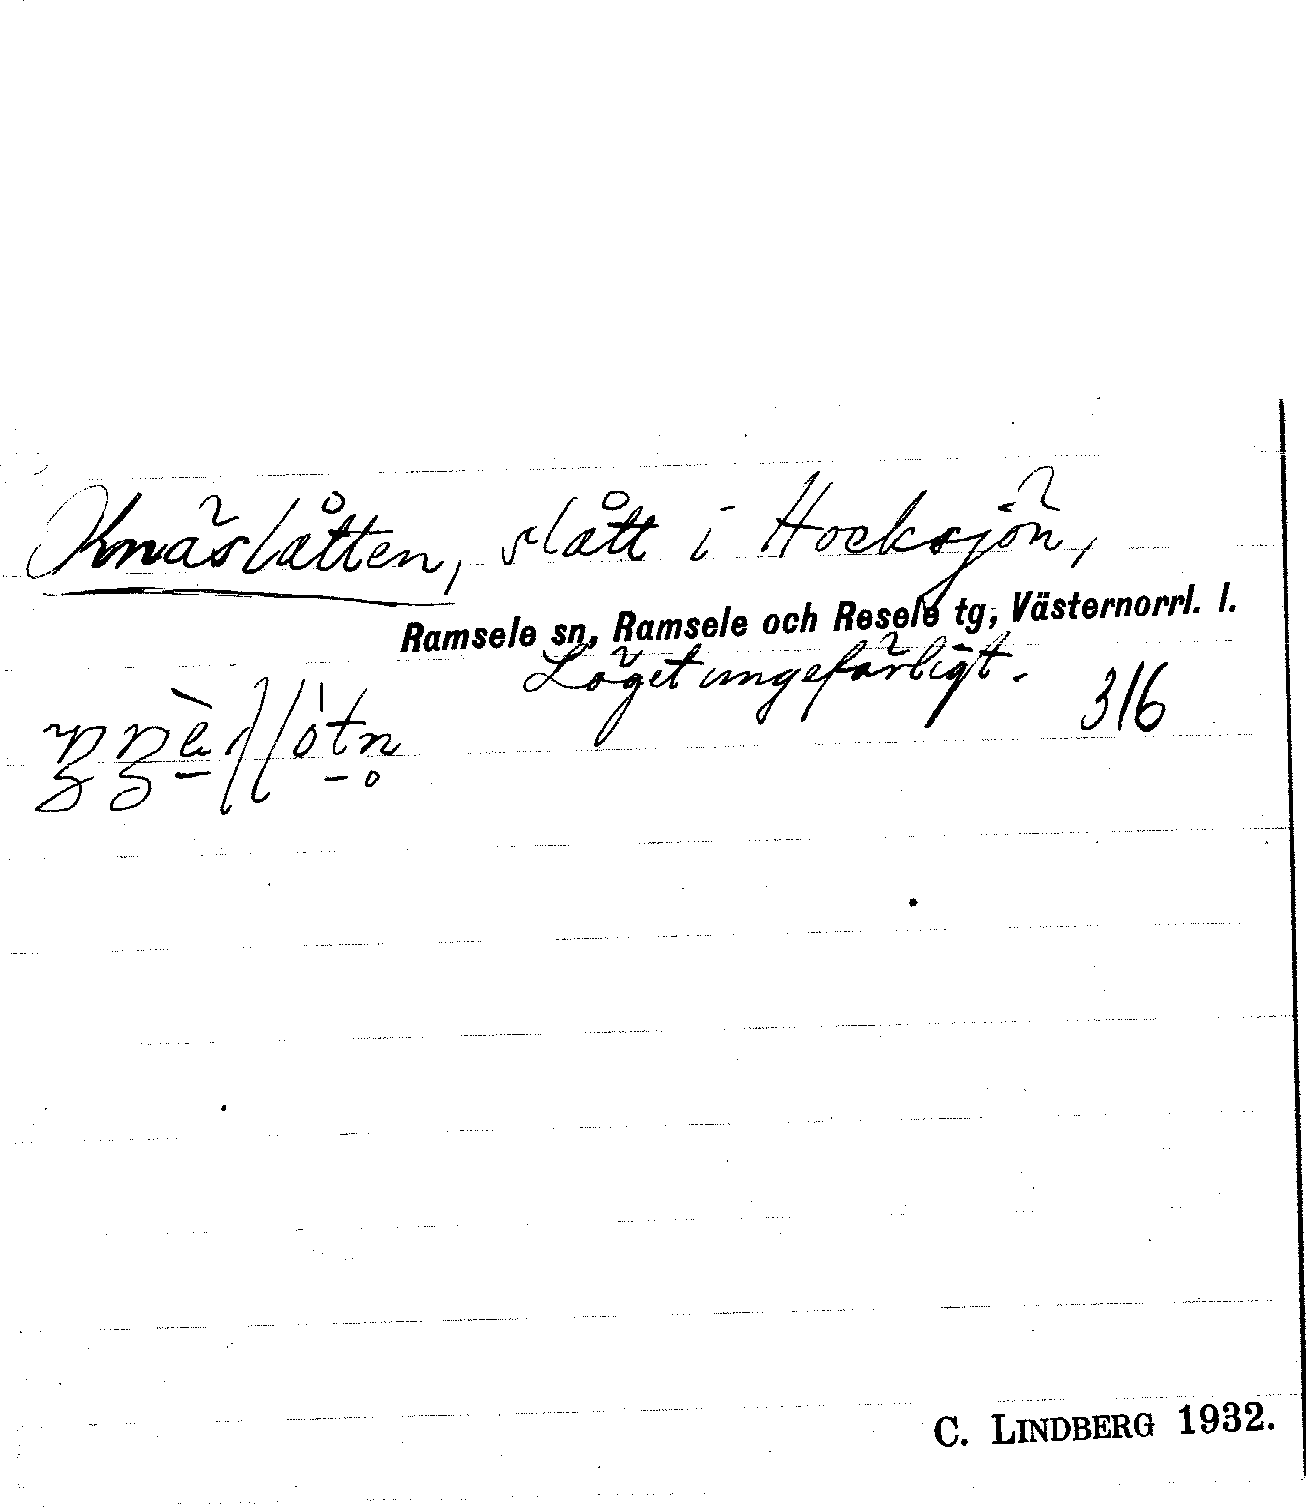 Knäslåtten, slått i Hocksjön,
Ramsele sn, Ramsele och Resele tg, Västernorrl. l.
Läget ungefärligt. 316
C. LINDBERG 1932.